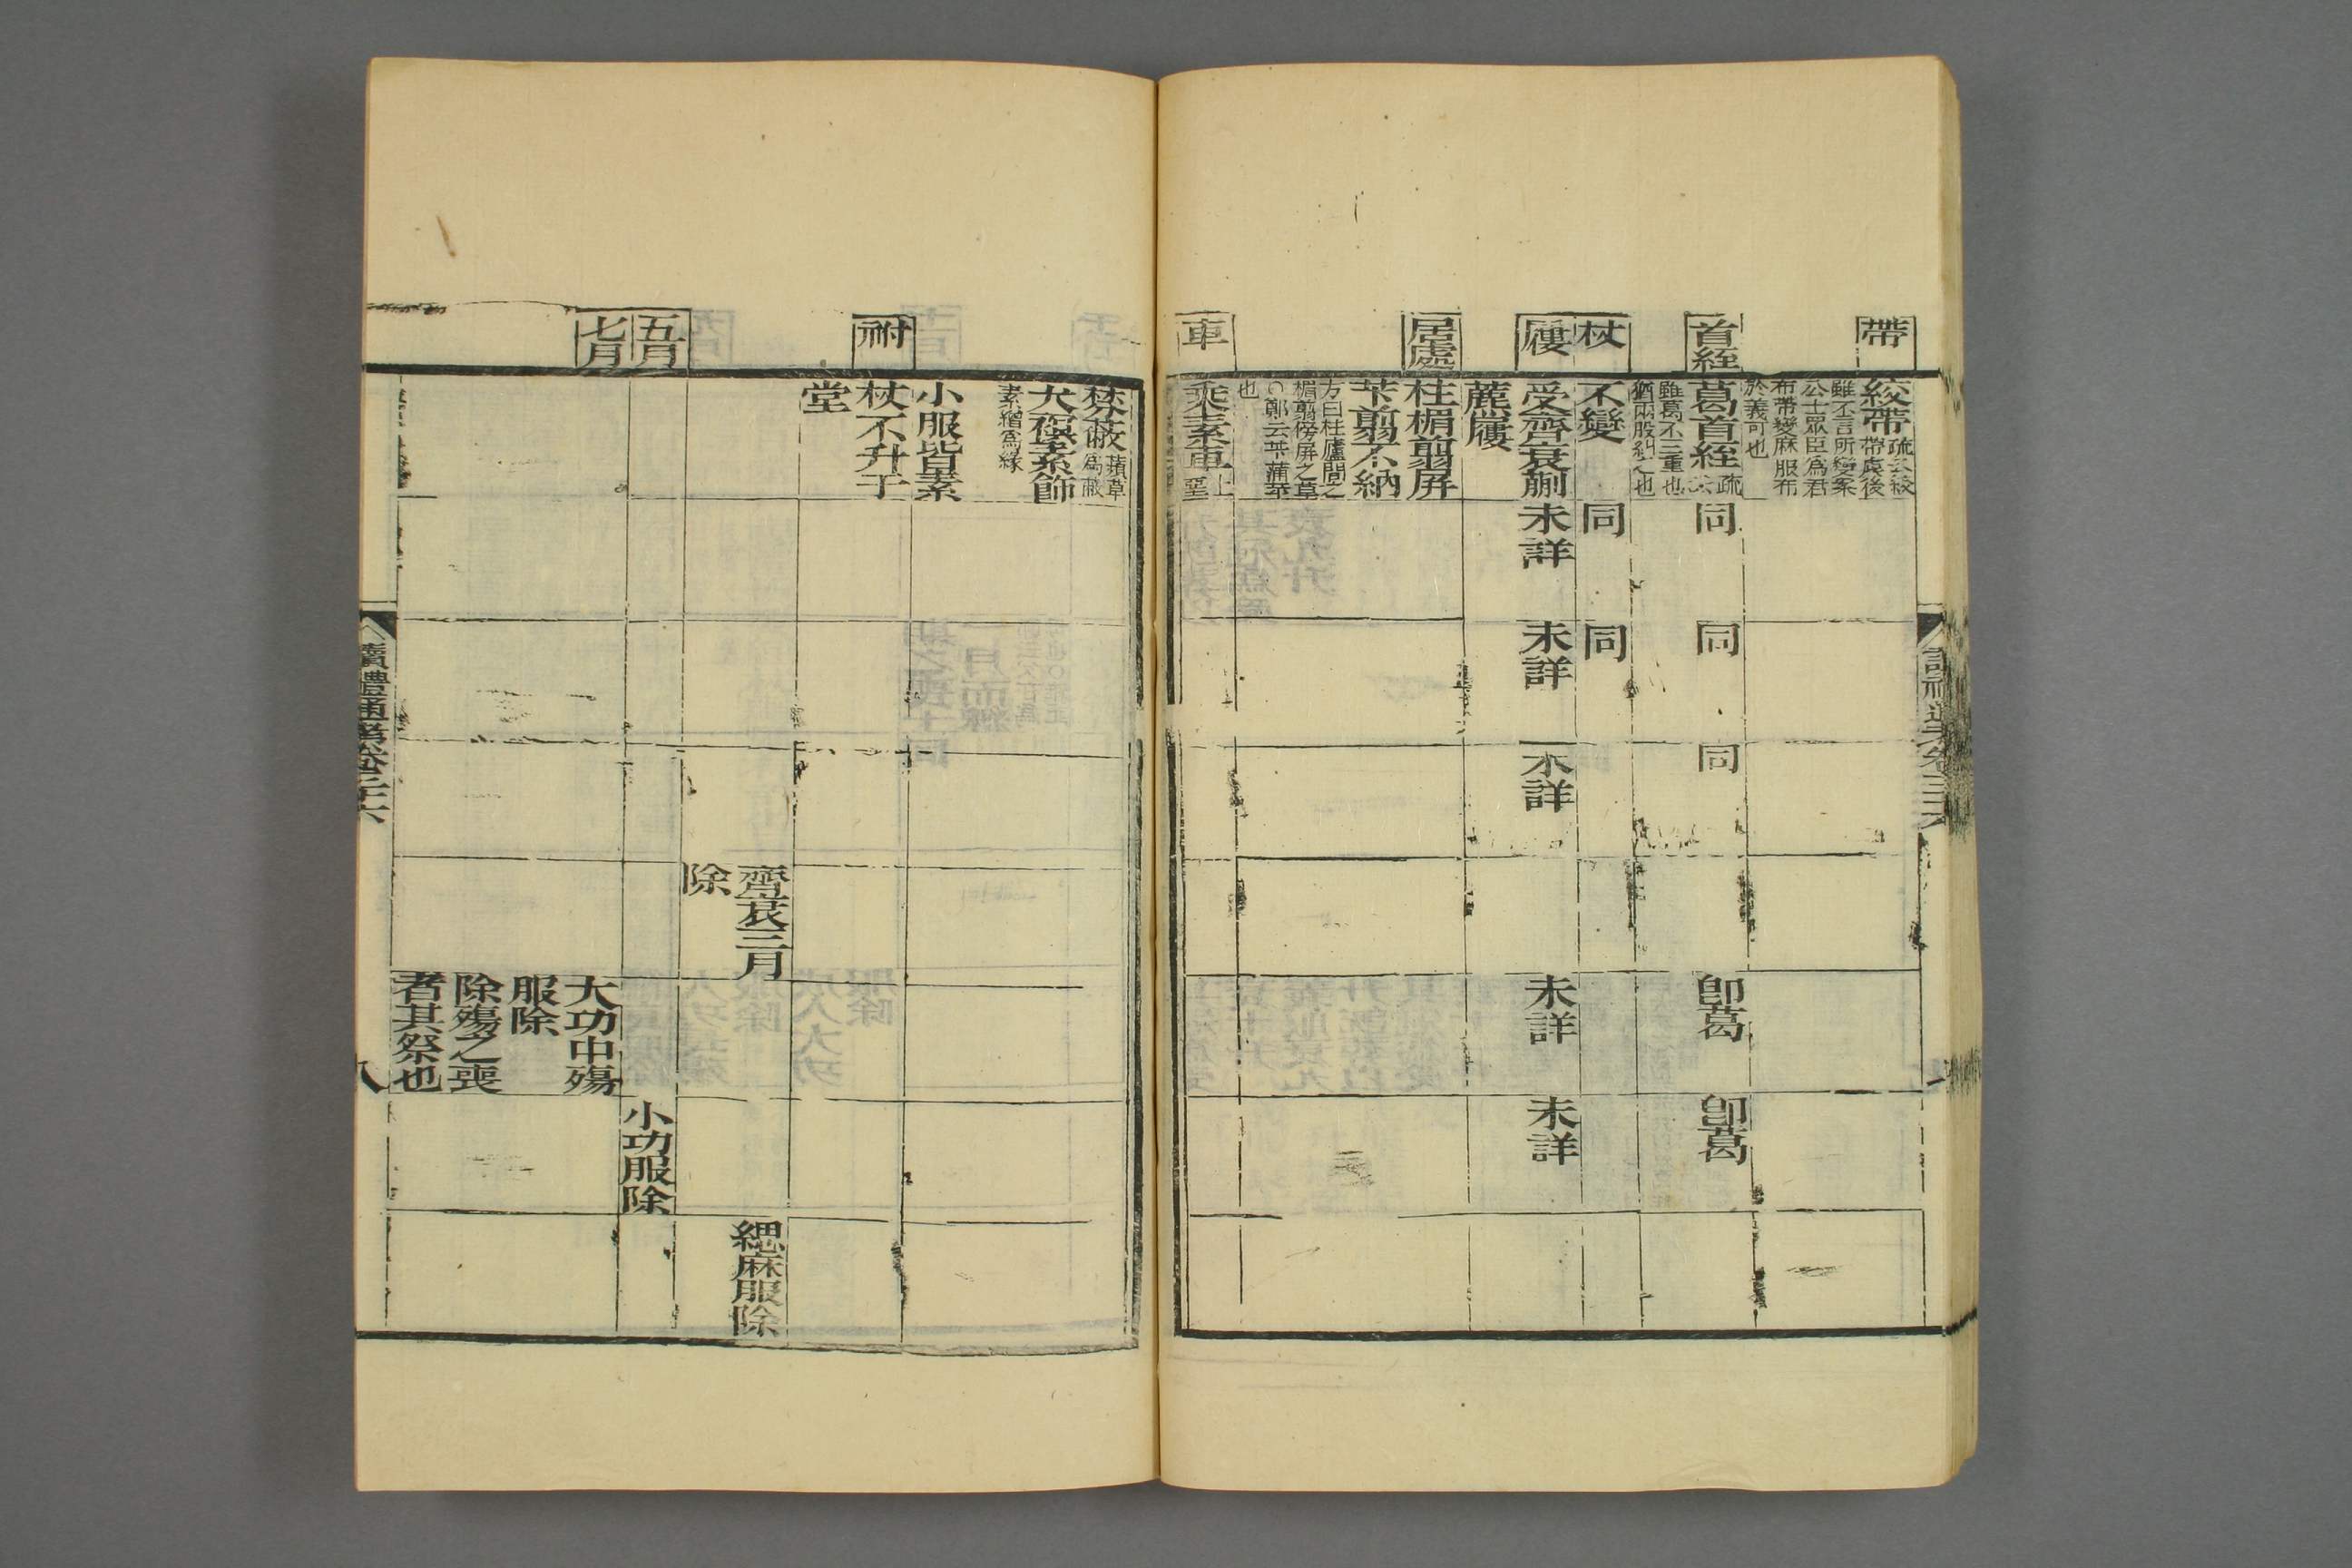 帶
絞帶疏云絞
帶虞後
雖不言所變案
公士眾臣爲君
布帶變麻服布
於義可也
首絰
葛首絰疏
雖葛不三重也
猶兩股糾之也
同
同
同
卽葛
卽葛
杖
不變
同
同
屨
受齊衰蒯
藨屨
未詳
未詳
未詳
未詳
未詳
居處
柱楣翦屏
苄翦不納
方曰柱廬間之
楣翦傍屏之草
〇鄭云苄蒲苹
也
車
乘素車
禁蔽蘋草
爲蔽
犬䄙素飾
素繒爲緣
小服皆素
祔
杖不升于
堂
齊衰三月
除
緦麻服除
五月
小功服除
七月
大功中殤
服除
除殤之喪
者其祭也
讀禮通考卷三十六
八